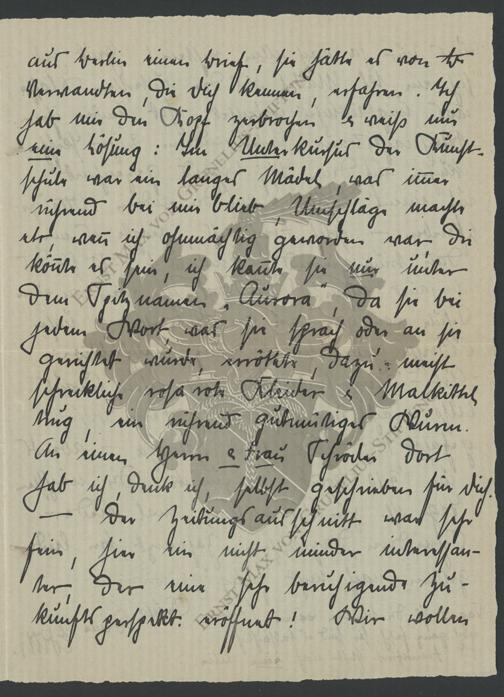 aus Berlin einen Brief, sie hätte es von
Verwandten, die Dich kennen, erfahren. Ich
hab mir den Kopf zerbrochen & weiß nur
eine Lösung: Im Unterkursus der Kunst-
schule war ein langes Mädel, was im̅er
rührend bei mir blieb, Umschläge machte
etc, wen̅ ich ohnmächtig geworden war, die
kön̅te es sein, ich kan̅te sie nur unter
dem Spitznamen „Aurora", da sie bei
jedem Wort, was sie sprach oder an sie
gerichtet wurde, errötete, dazu meist
schreckliche rosarote Kleider & Malkittel
trug, ein rührend gutmütiges Wurm.
An einen Herrn & Frau Schröder dort
hab ich, denk ich, selbst geschrieben für Dich.
— Der Zeitungsausschnitt war sehr
fein, hier ein nicht minder interessan-
ter, der eine sehr beruhigende Zu-
kunftsperspekt. eröffnet! Wir wollen